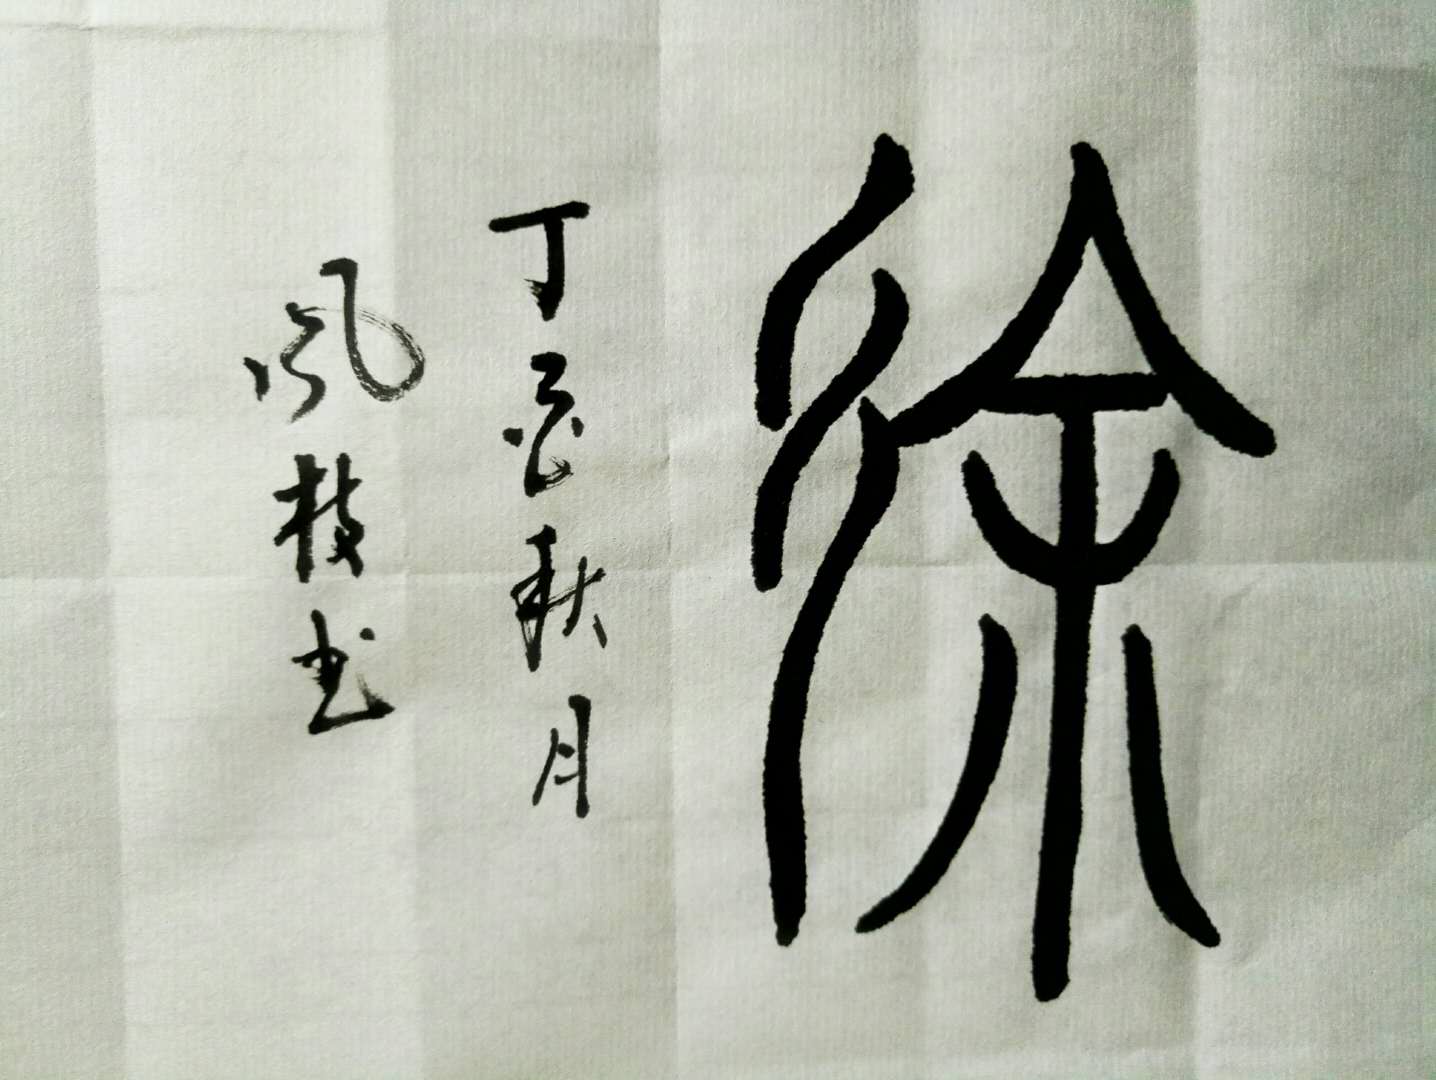 徐
丁酉秋月
风枝书